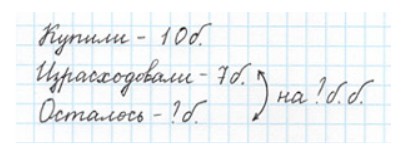 Купили - 10б.
Израсходовали - 7б.
на ?б.б.
Осталось - ?б.